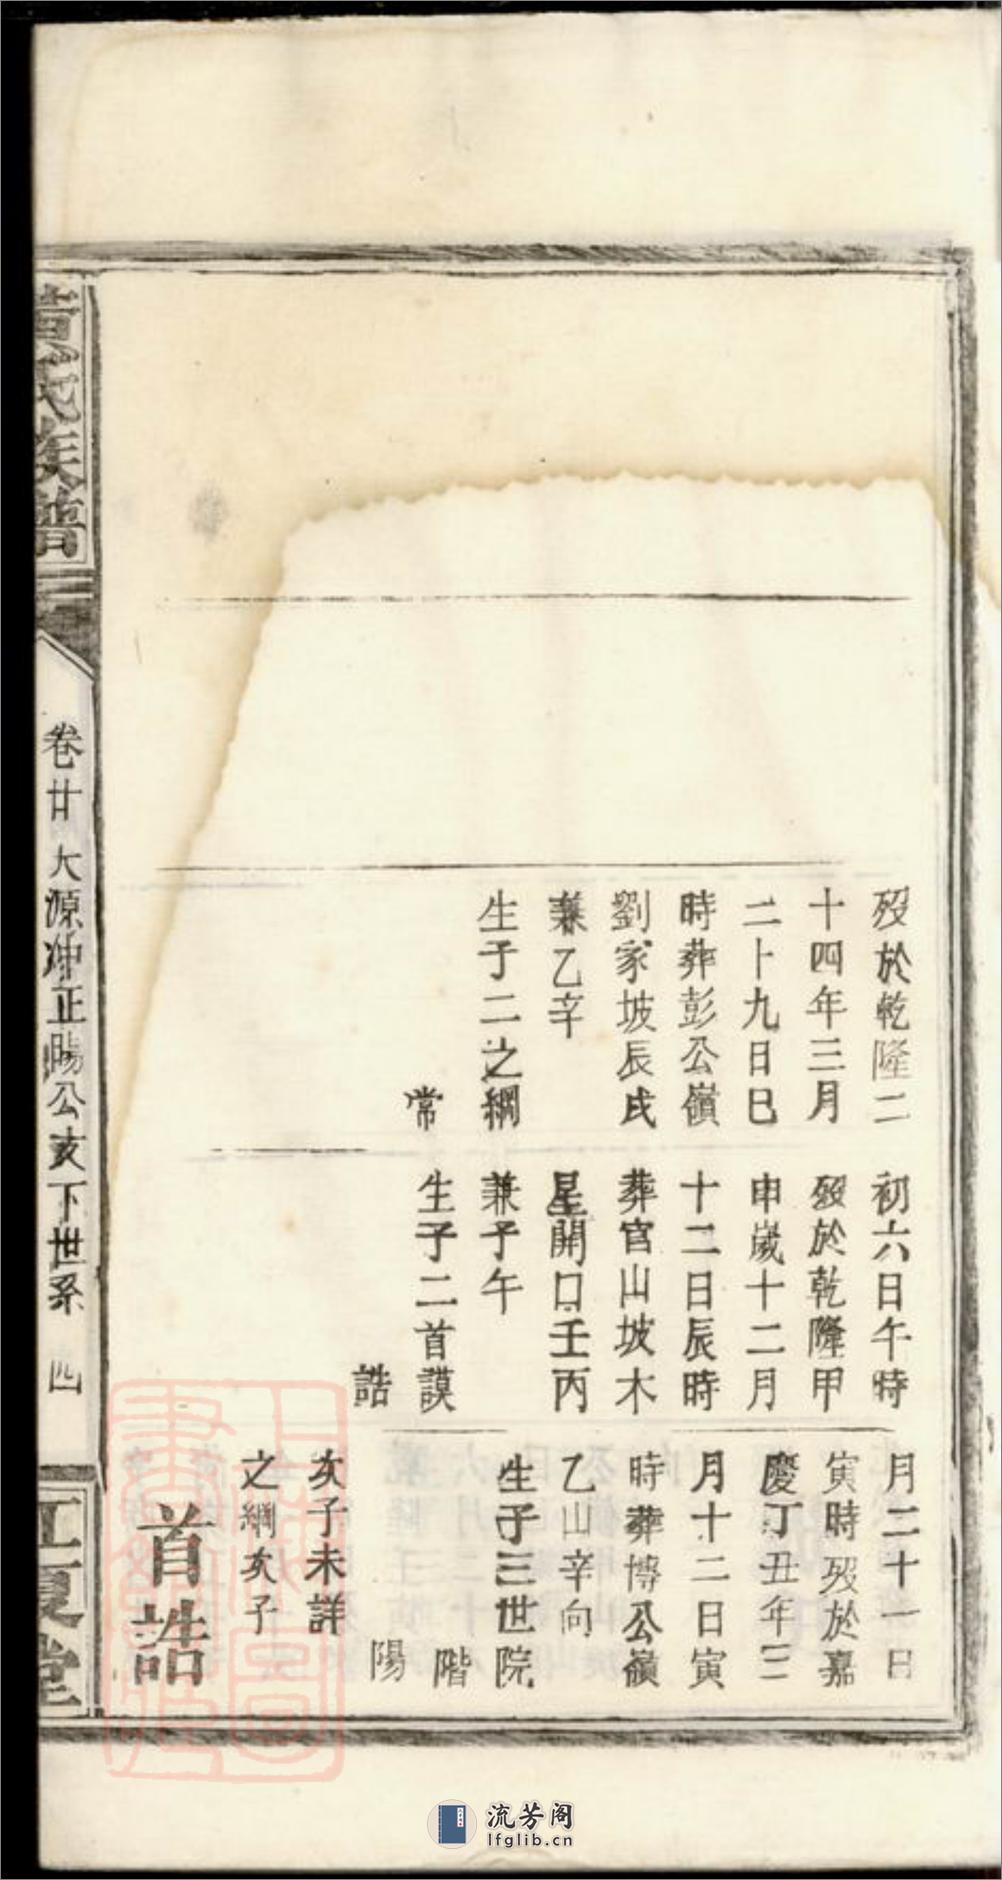 歿於乾隆二
十四年三月
二十九日巳
時葬彭公嶺
劉家坡辰戌
兼乙辛
生子二之綱
常
初六日午時
歿於乾隆甲
申歲十二月
十二日辰時
葬官山坡木
星開口壬丙
兼子午
生子二首謨
誥
月二十一日
寅時歿於嘉
慶丁丑年三
月十二日寅
時葬博公嶺
乙山辛向
生子三世院
階
陽
亥子未詳
之綱亥子
首誥
黃氏族譜
卷廿 大源冲正暘公亥下世系 四
江夏堂
流芳阁
lfglib.cn